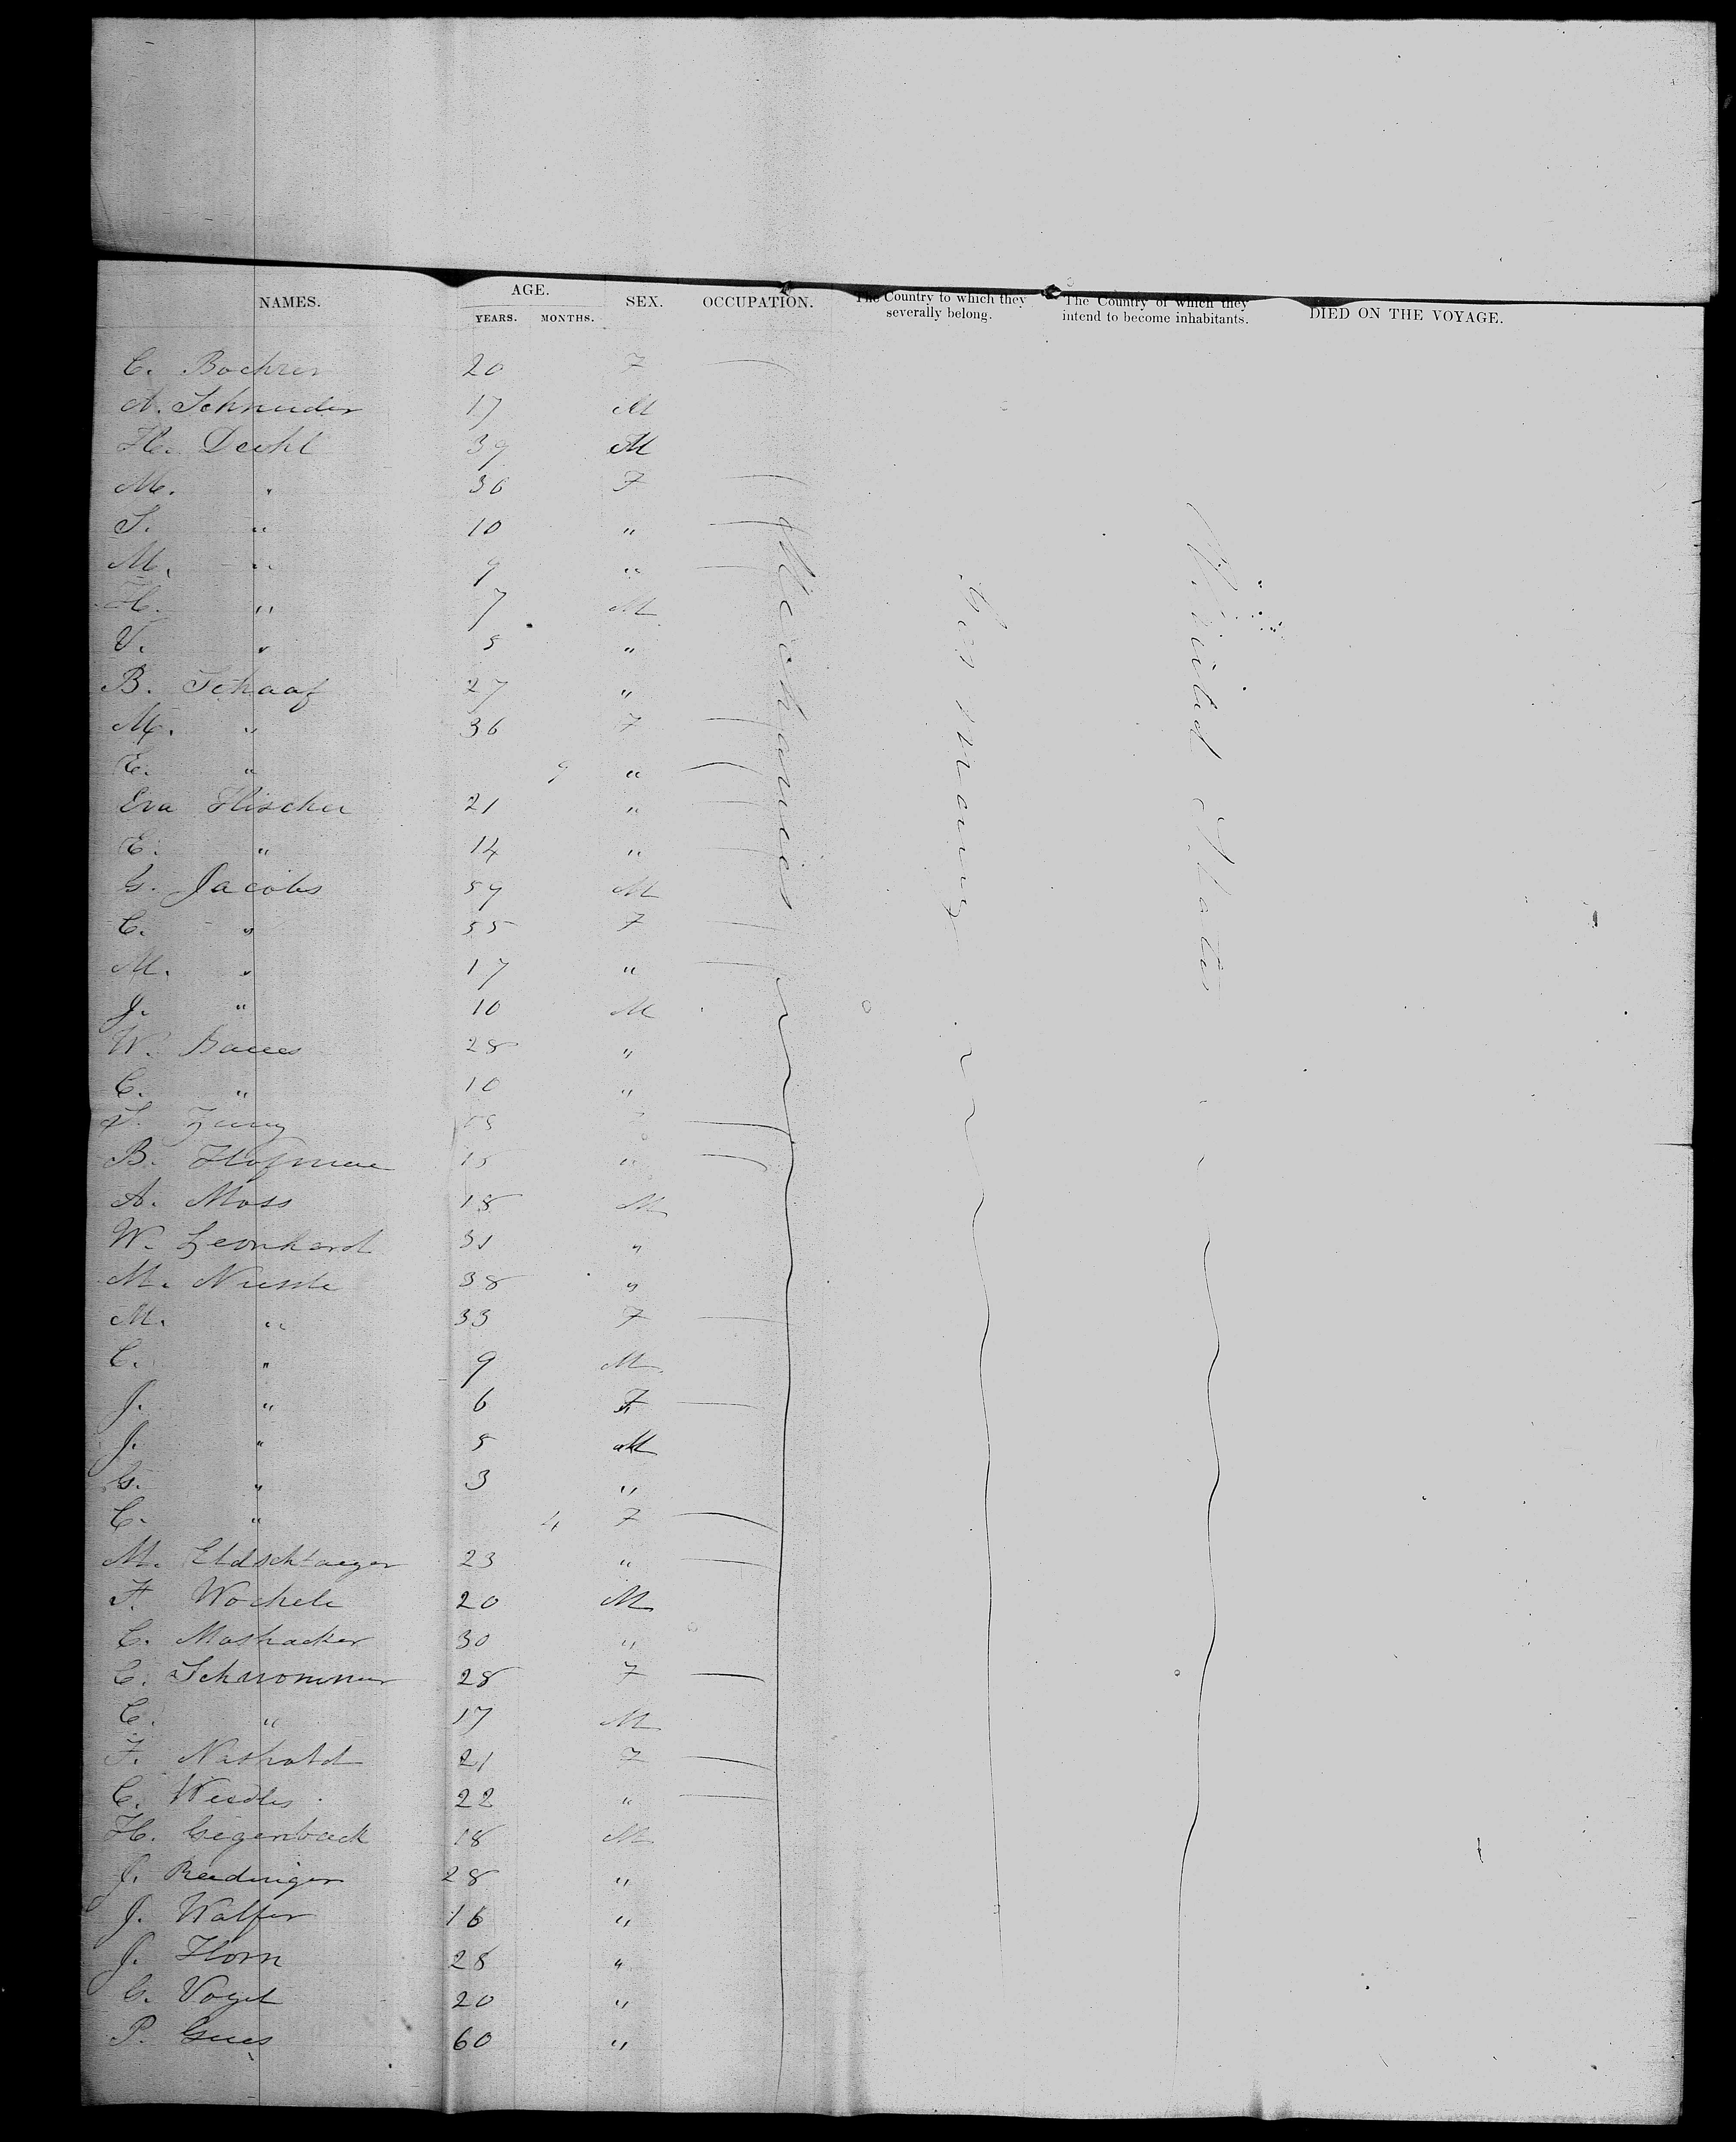 NAMES. AGE. SEX. OCCUPATION. The Country to which they severally belong. The Country of which they intend to become inhabitants. DIED ON THE VOYAGE.
YEARS. MONTHS.
C. Bochrer 20 F —
A. Schneider 17 M
H. Deohl 39 M
M. " 36 F —
S. " 10 " —
M. " 9 " —
H. " 7 M
V. " 5 "
B. Schaaf 27 "
M. " 36 F —
E. " 9 " —
Eva Hischer 21 " —
E. " 14 " —
G. Jacobs 59 M
C. " 55 F —
M. " 17 " —
J. " 10 M
W. Baues 28 "
C. " 10 "
Jung —
B. Hofmae 18 " —
A. Moss 18 M
W. Leonhard 31 "
M. Nussle 38 "
M. " 33 F —
C. " 9 M
J. " 6 F —
J. " 5 M
G. " 3 "
C. " 4 F —
M. Eldschlaeger 23 " —
F. Wochele 20 M
C. Moshacker 30 "
C. Schwommer 28 F —
C. " 17 M
F. Nashold 21 F —
C. Weidles 22 " —
H. Gegenback 18 M
J. Reedinger 28 "
J. Walfer 16 "
J. Horn 28 "
G. Vogel 20 "
P. Gues 60 "
Mechanics
Germany
United States